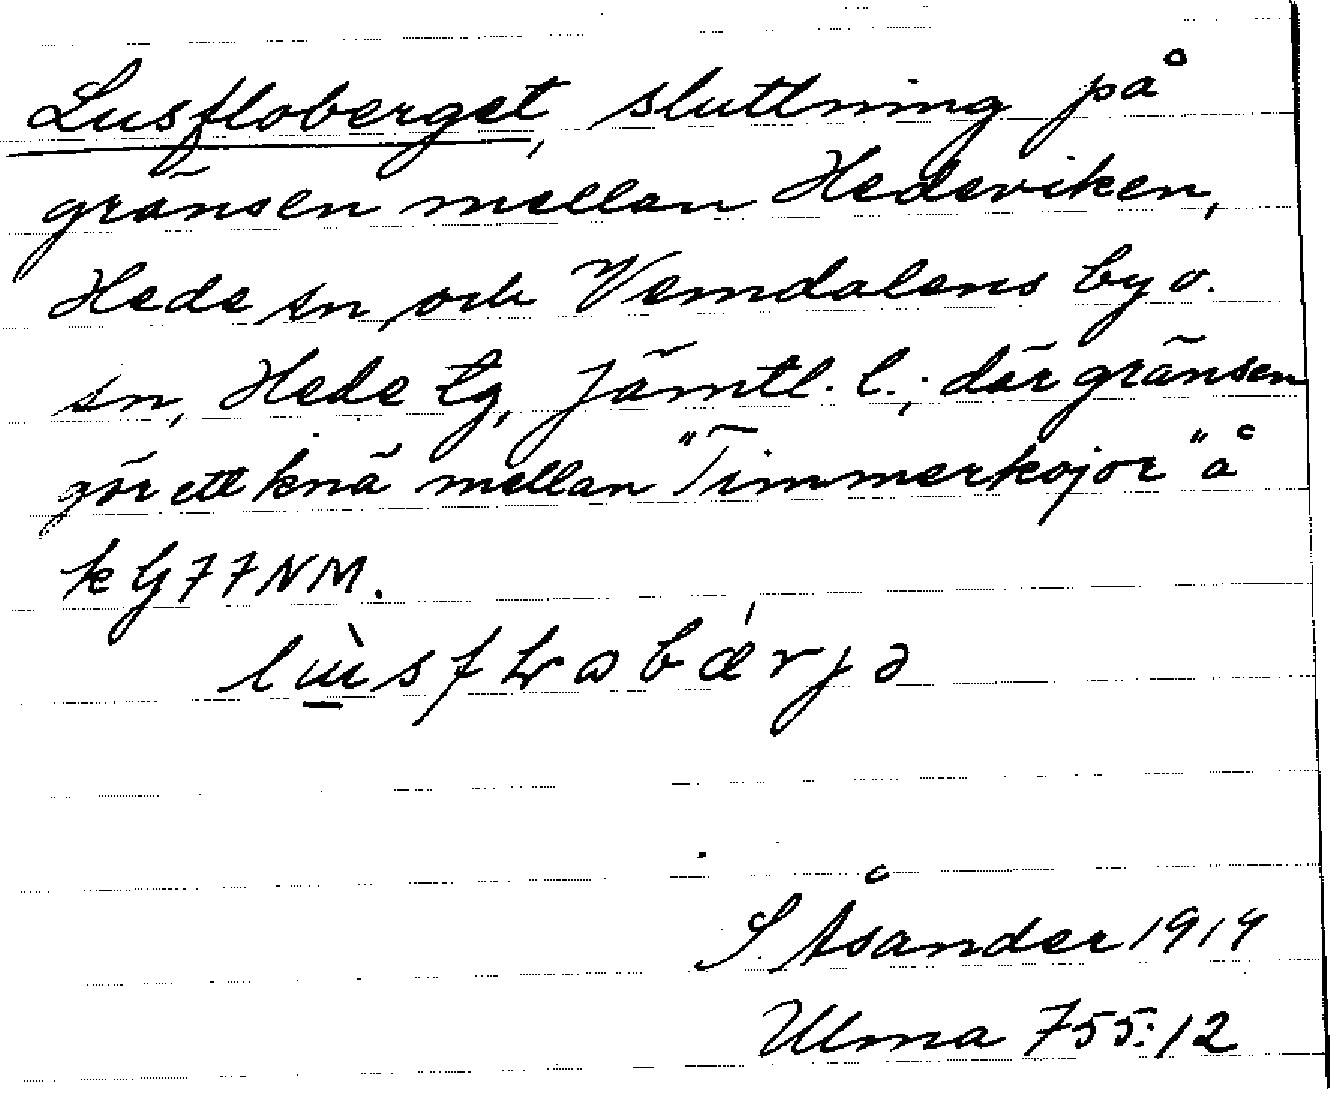 Lusfloberget, sluttning på
gränsen mellan Hedeviken,
Hede sn, och Vemdalens by o.
sn, Hede tg, Jämtl. l.; där gränsen
gör ett knä mellan "Timmerkojor" å
k G77NM.
S. Åsander 1919
Ulma 755:12